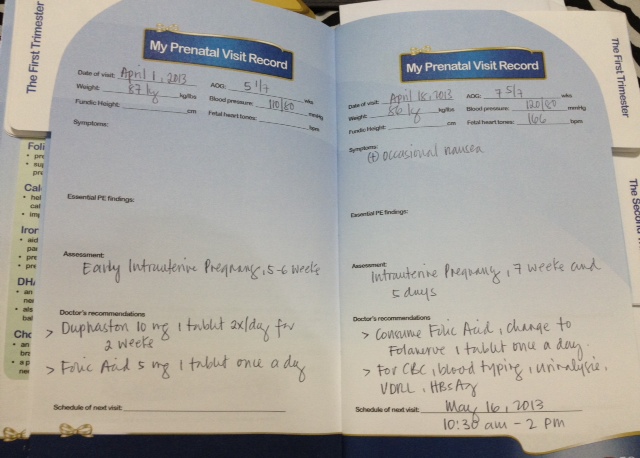 The First Trimester
My Prenatal Visit Record
Date of visit: April 1, 2013 AOG: 5 1/7 wks
Weight: 87 kg kg/lbs Blood pressure: 110/80 mmHg
Fundic Height: cm Fetal heart tones: bpm
Symptoms:
Essential PE findings:
Assessment:
Early Intrauterine Pregnancy, 5-6 weeks
Doctor's recommendations
> Duphaston 10 mg 1 tablet 2x/day for
2 weeks
> Folic Acid 5 mg 1 tablet once a day
Schedule of next visit:
My Prenatal Visit Record
Date of visit: April 18, 2013 AOG: 7 5/7 wks
Weight: 86 kg kg/lbs Blood pressure: 120/80 mmHg
Fundic Height: cm Fetal heart tones: 166 bpm
Symptoms:
(+) occasional nausea
Essential PE findings:
Assessment:
Intrauterine Pregnancy, 7 weeks and
5 days
Doctor's recommendations
> Consume Folic Acid, change to
1 tablet once a day.
> For CBC, blood typing, urinalysis,
VDRL, HBsAg
Schedule of next visit: May 16, 2013
10:30 am - 2 pm
The First Trimester
The Second
Foli
Cal
Iron
DHA
Cho